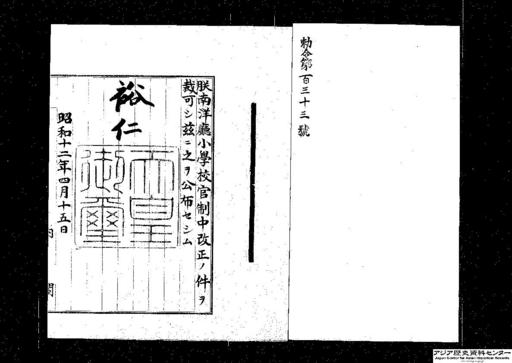 勅令第百三十三號
朕南洋廳小學校官制中改正ノ件ヲ
裁可シ茲ニ之ヲ公布セシム
裕仁
天皇
御璽
昭和十二年四月十五日
内閣
アジア歴史資料センター
Japan Center for Asian Historical Records